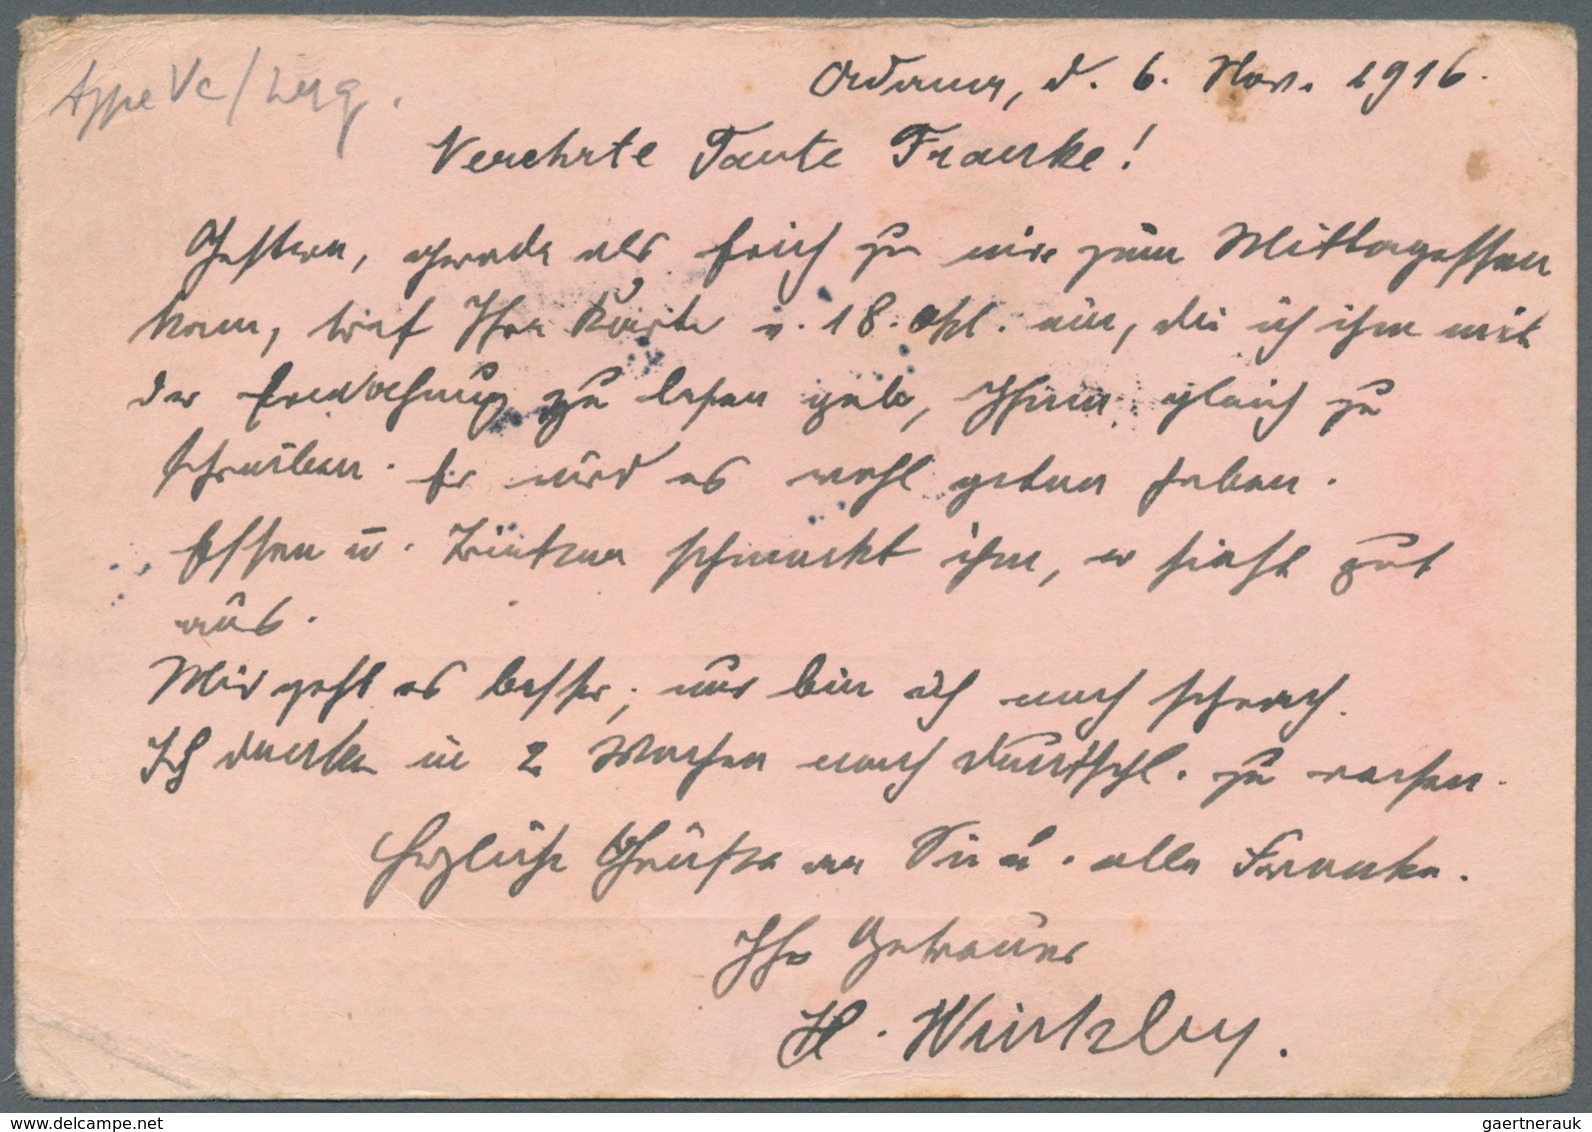 Type Vc /
Adana, d. 6. Nov. 1916.
Verehrte Tante Franke!
Gestern, gerade als Erich zu mir zum Mittagessen
kam, traf Ihre Karte v. 18. Okt. ein, die ich ihm mit
der Ermahnung zu lesen gebe, Ihnen gleich zu
schreiben. Er wird es wohl getan haben.
Essen u. Trinken schmeckt ihm, er sieht gut
aus.
Mir geht es besser; nur bin ich noch schwach.
Ich denke in 2 Wochen nach Deutschl. zu reisen.
Herzliche Grüße an Sie u. alle Franke.
Ihr Getreuer
H.
gaertnerauk